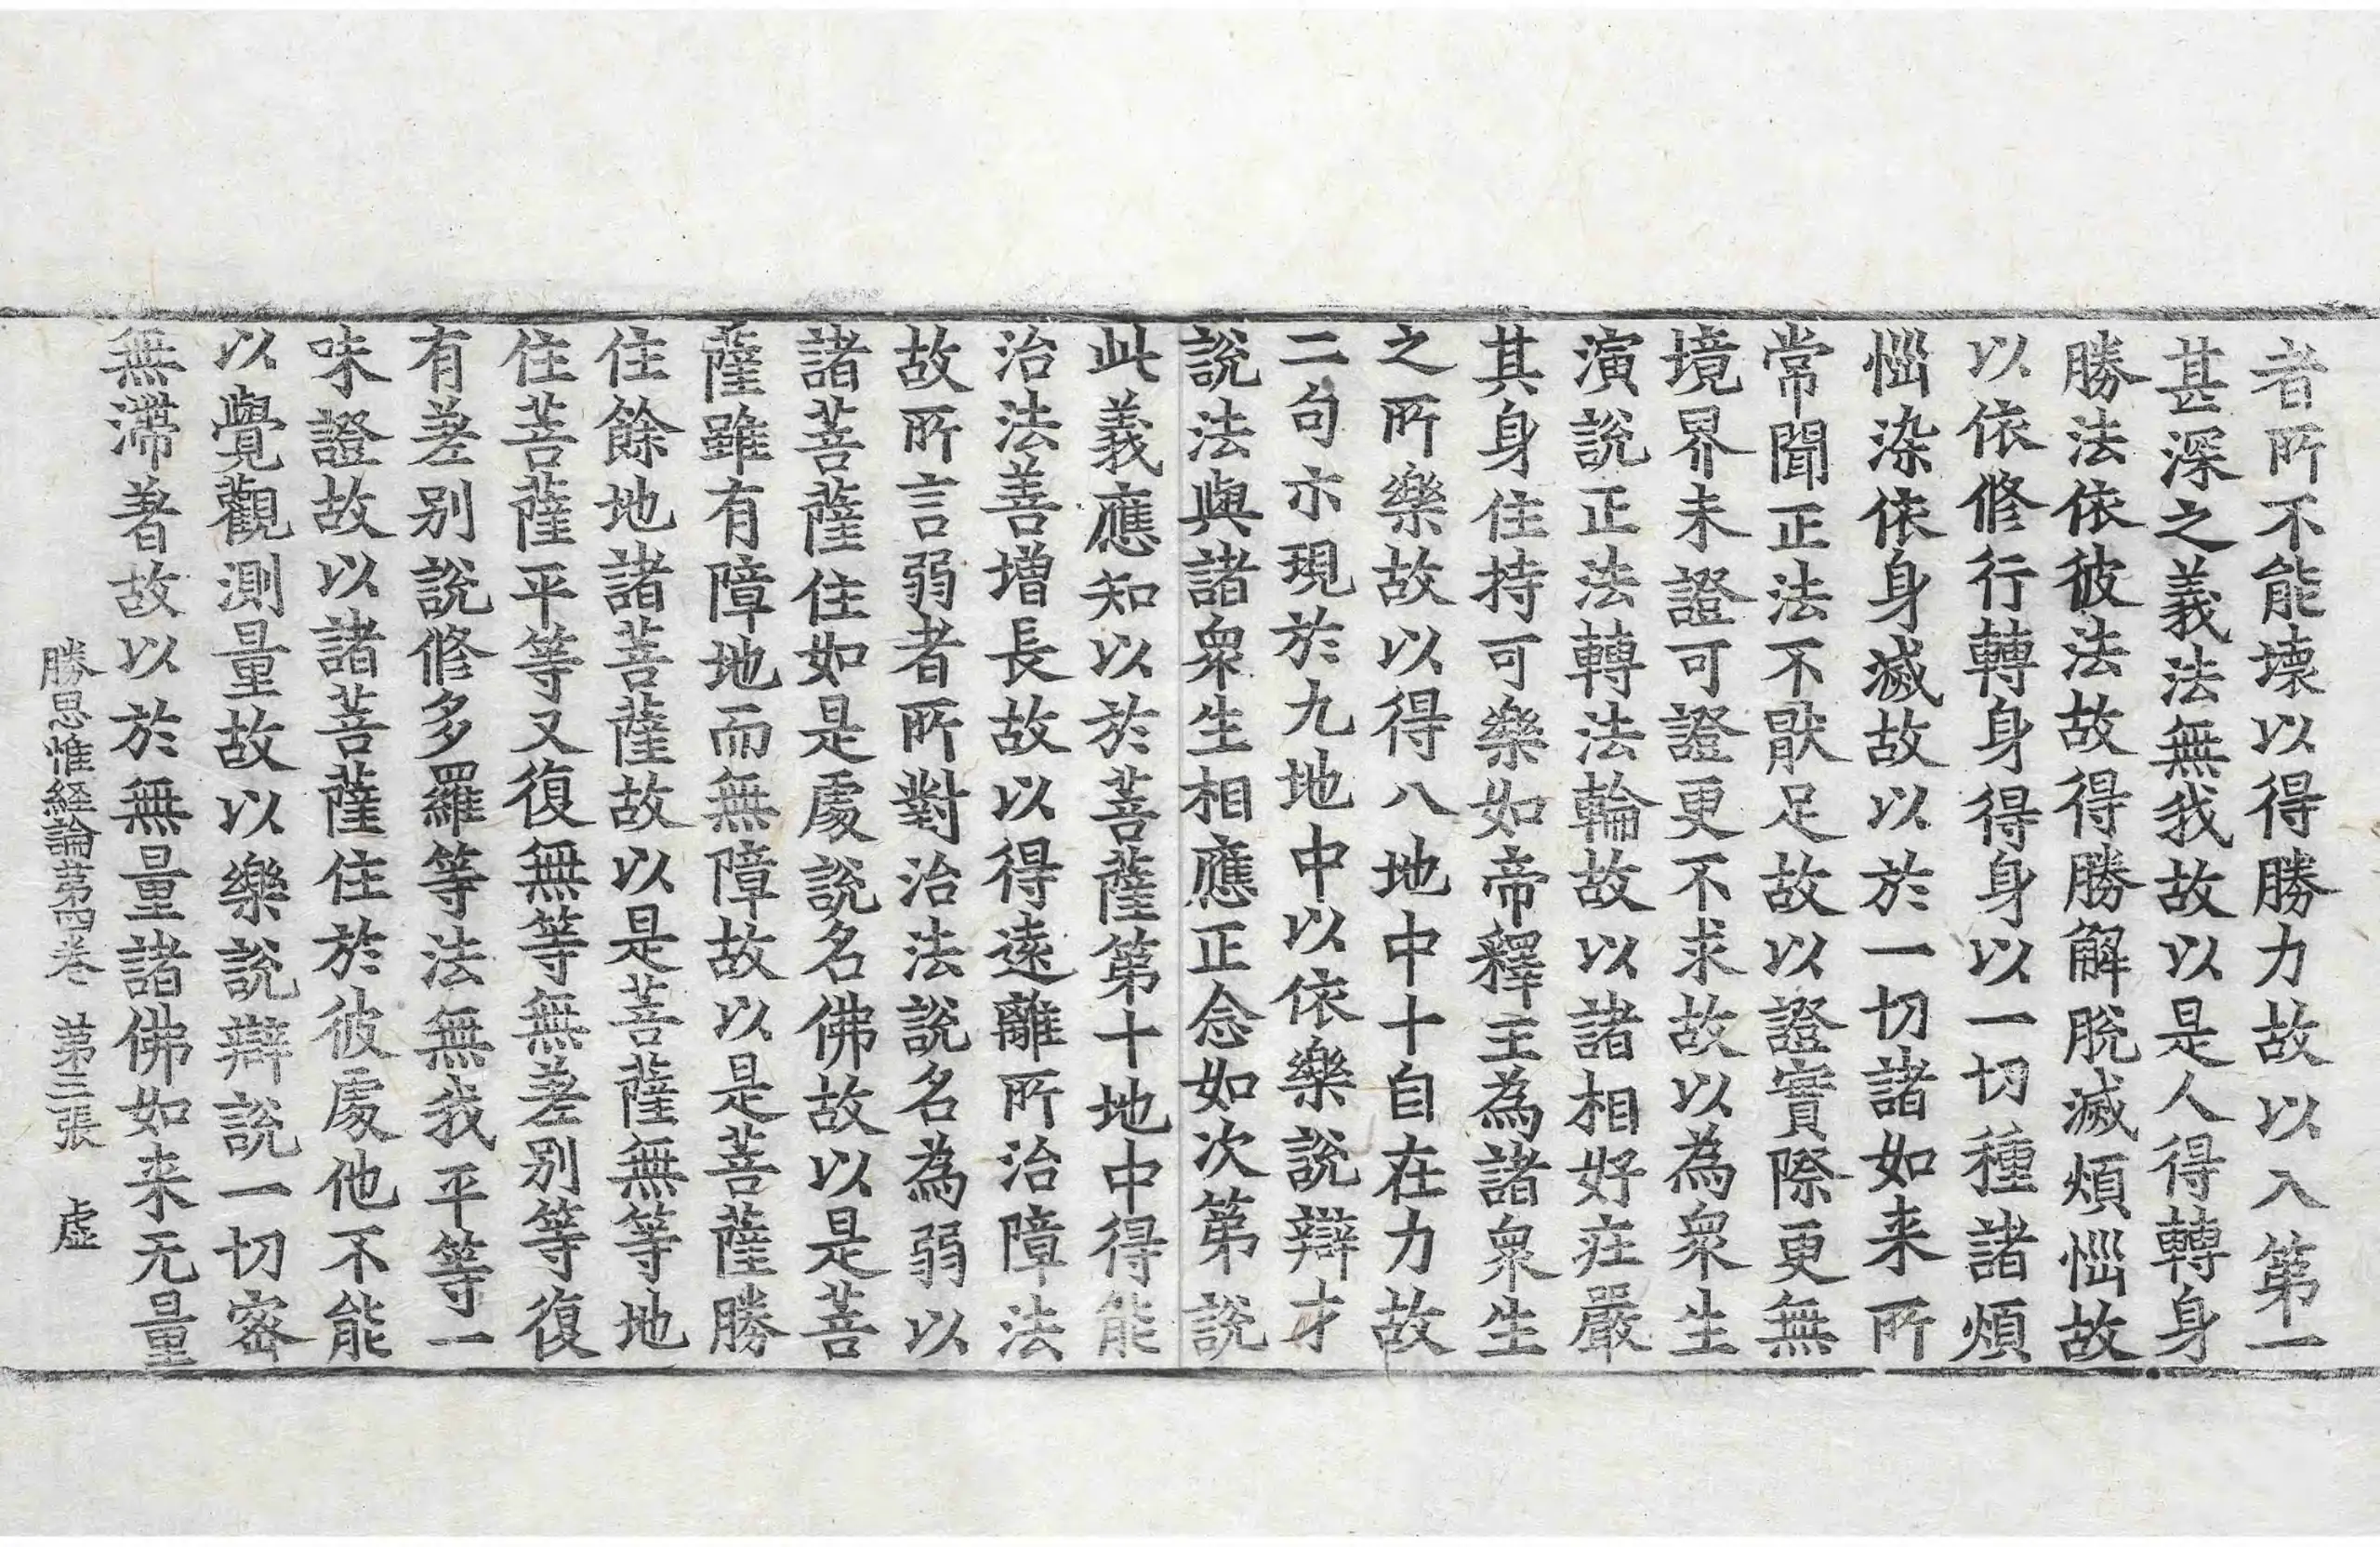 者所不能壊以得勝力故以入第一
甚深之義法無我故以是人得轉身
勝法依彼法故得勝解脫滅煩惱故
以依修行轉身得身以一切種諸煩
惱染依身滅故以於一切諸如来所
常聞正法不猒足故以證實際更無
境界未證可證更不求故以為衆生
演說正法轉法輪故以諸相好莊嚴
其身住持可樂如帝釋主為諸衆生
之所樂故以得八地中十自在力故
二句示現於九地中以依樂說辯才
說法與諸衆生相應正念如次第說
此義應知以於菩薩第十地中得能
治法善增長故以得遠離所治障法
故所言弱者所對治法說名為弱以
諸菩薩住如是處說名佛故以是菩
薩雖有障地而無障故以是菩薩勝
住餘地諸菩薩故以是菩薩無等地
住菩薩平等又復無等無差別等復
有差別說修多羅等法無我平等一
味證故以諸菩薩住於彼處他不能
以覺觀測量故以樂說辯說一切密
無滯著故以於無量諸佛如来无量
勝思惟経論第四卷　第三張　虛